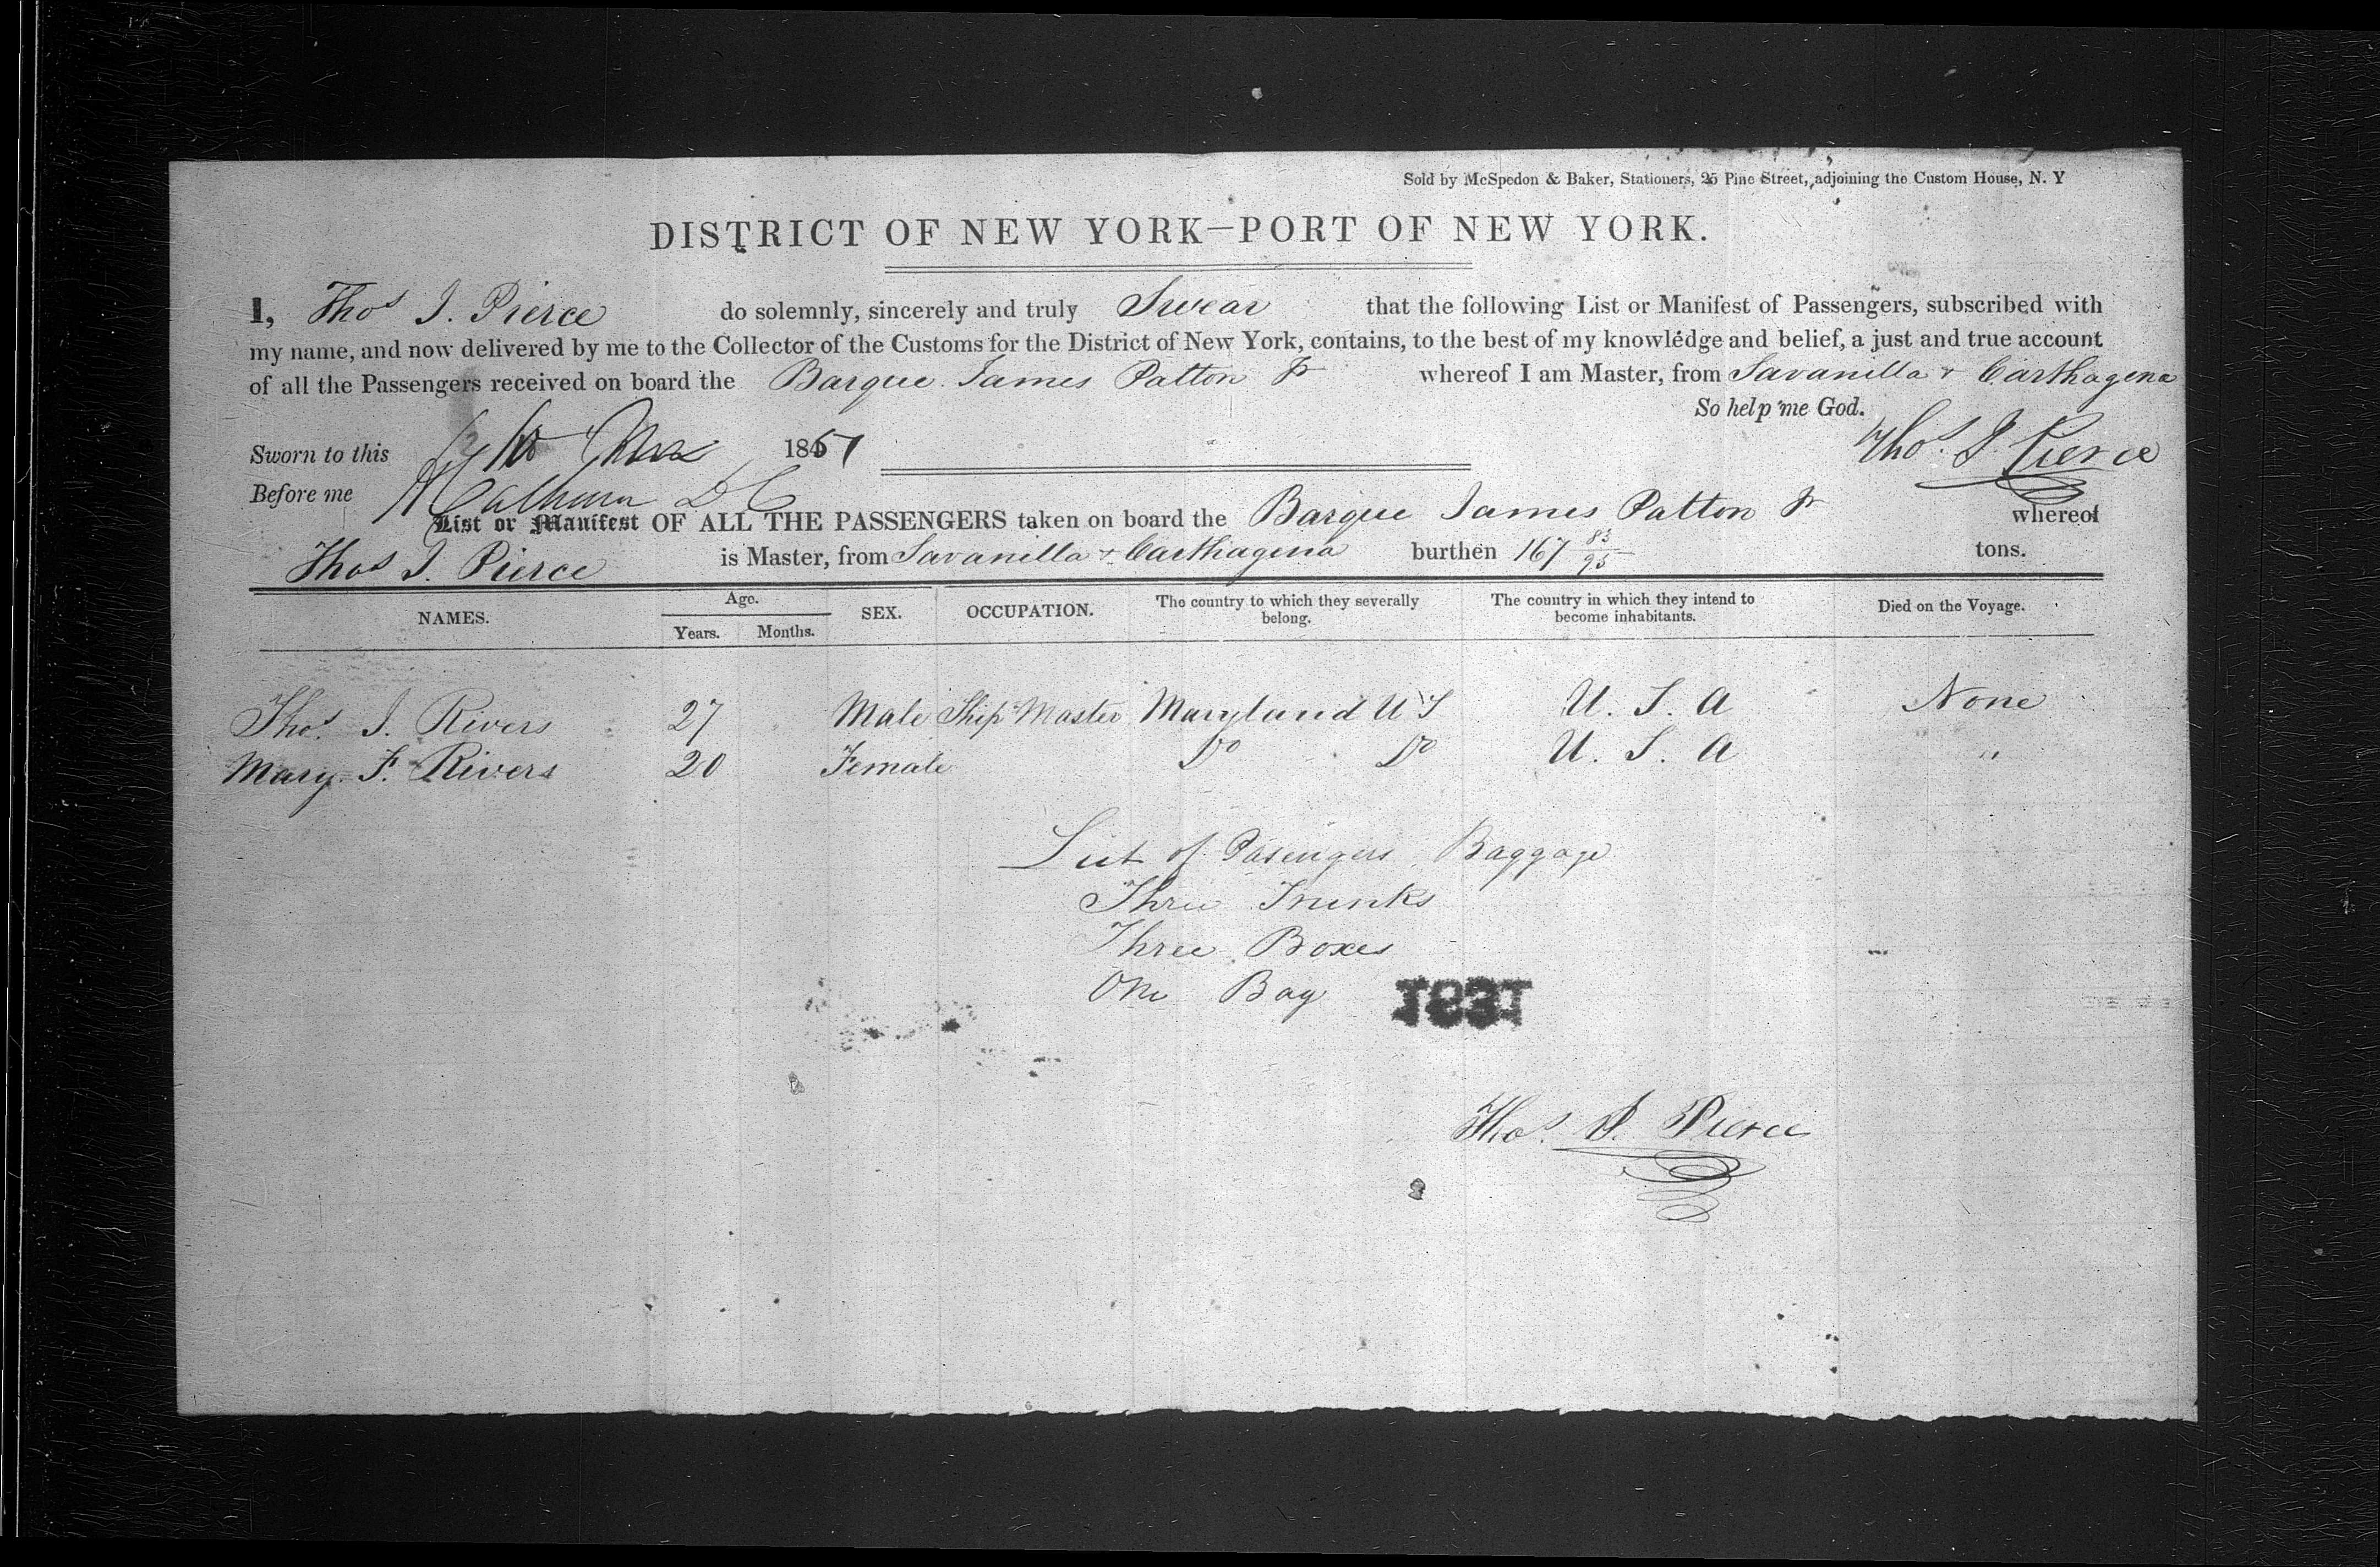 Sold by McSpedon & Baker, Stationers, 25 Pine Street, adjoining the Custom House, N. Y
DISTRICT OF NEW YORK—PORT OF NEW YORK.
I, Thos J. Pierce do solemnly, sincerely and truly Swear that the following List or Manifest of Passengers, subscribed with
my name, and now delivered by me to the Collector of the Customs for the District of New York, contains, to the best of my knowledge and belief, a just and true account
of all the Passengers received on board the Barque James Patton Jr whereof I am Master, from Savanilla & Carthagena
So help me God.
Sworn to this 1851 Thos. J. Pierce
Before me Calhoun D C
List or Manifest OF ALL THE PASSENGERS taken on board the Barque James Patton Jr whereof
Thos J. Pierce is Master, from Savanilla & Carthagena burthen 167 83/95 tons.
NAMES. Age. Years. Months. SEX. OCCUPATION. The country to which they severally belong. The country in which they intend to become inhabitants. Died on the Voyage.
Thos. J. Rivers 27 Male Ship Master Maryland U S U. S. A None
Mary. F. Rivers 20 Female Do Do U. S. A "
List of Pasengers Baggage
Three Trunks
Three Boxes
One Bag
1851
Thos. J. Pierce